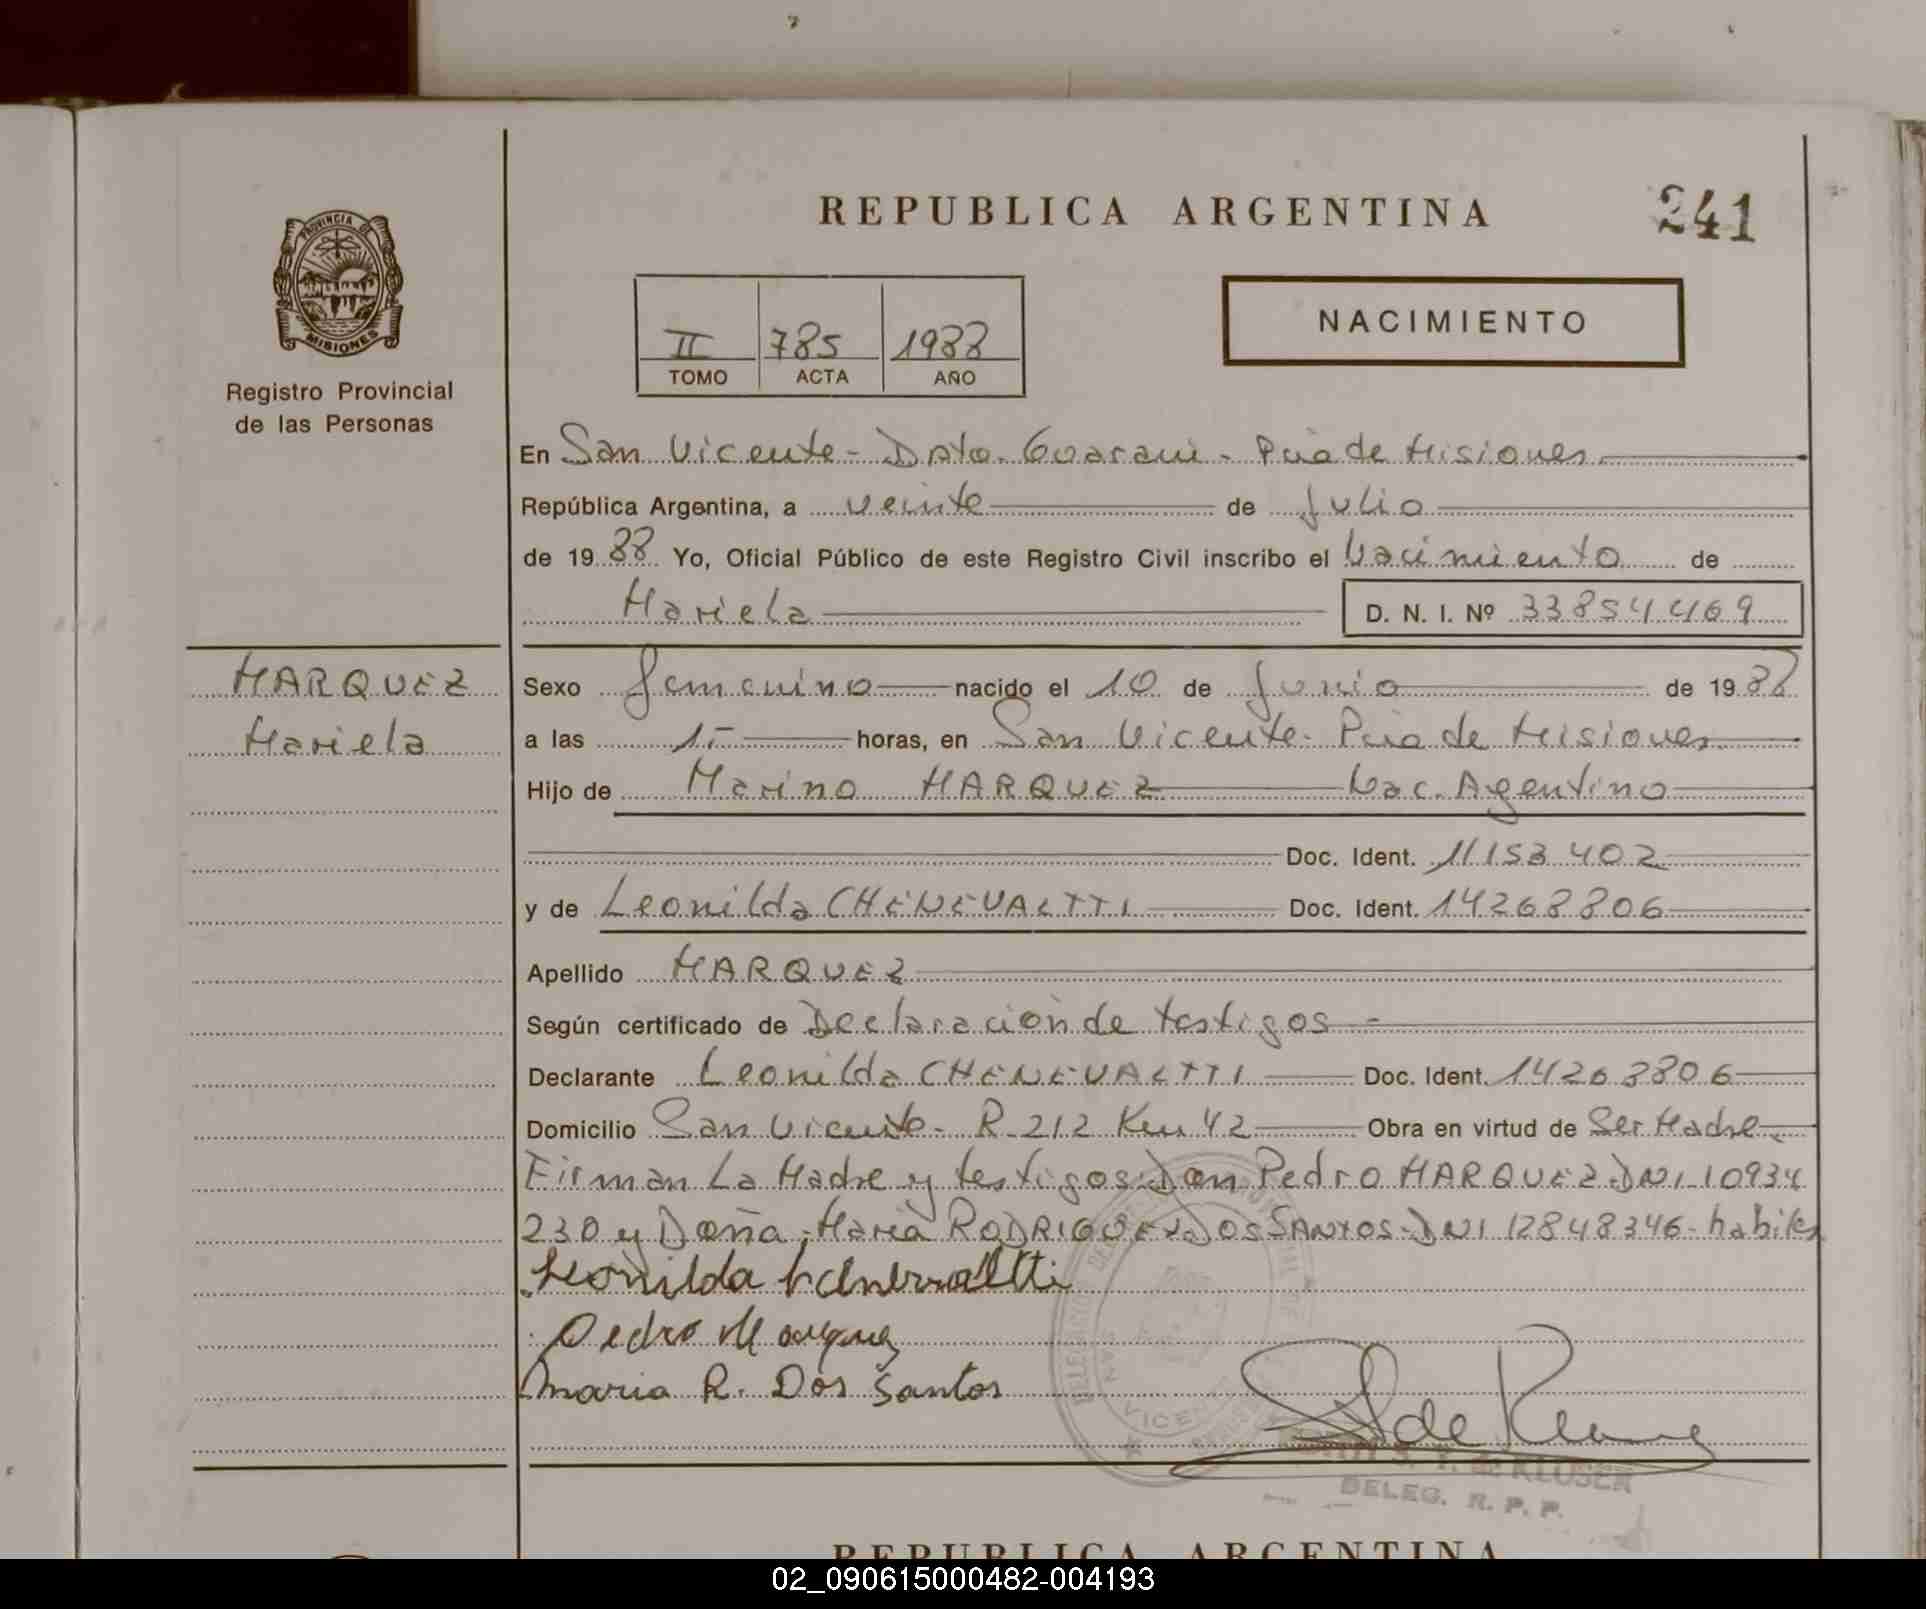 REPUBLICA ARGENTINA
241
PROVINCIA DE
MISIONES
Registro Provincial
de las Personas
II 785 1988
TOMO ACTA AÑO
NACIMIENTO
En San Vicente - Dpto. Guarani - Pcia de Misiones
República Argentina, a veinte de Julio
de 1988 Yo, Oficial Público de este Registro Civil inscribo el Nacimiento de
Mariela D. N. I. Nº 33854469
MARQUEZ
Mariela
Sexo femenino nacido el 10 de Junio de 1988
a las 15 horas, en San Vicente - Pcia de Misiones
Hijo de Marino MARQUEZ Nac. Agentino
Doc. Ident. 11153402
y de Leonilda CHENEVALTTI Doc. Ident. 14268806
Apellido MARQUEZ
Según certificado de Declaración de testigos -
Declarante Leonilda CHENEVALTTI Doc. Ident. 14268806
Domicilio San Vicente - R. 212 Km 42 Obra en virtud de Ser Madre.
Firman La Madre y testigos: Don Pedro MARQUEZ DNI 10934
230 y Doña María RODRIGUEZ DOS SANTOS - DNI 12848346 - habiles
Leonilda
Pedro Marquez
Maria R. Dos Santos
VICENTE
S. T. de KLUSER
DELEG. R. P. P.
REPUBLICA ARGENTINA
02_090615000482-004193